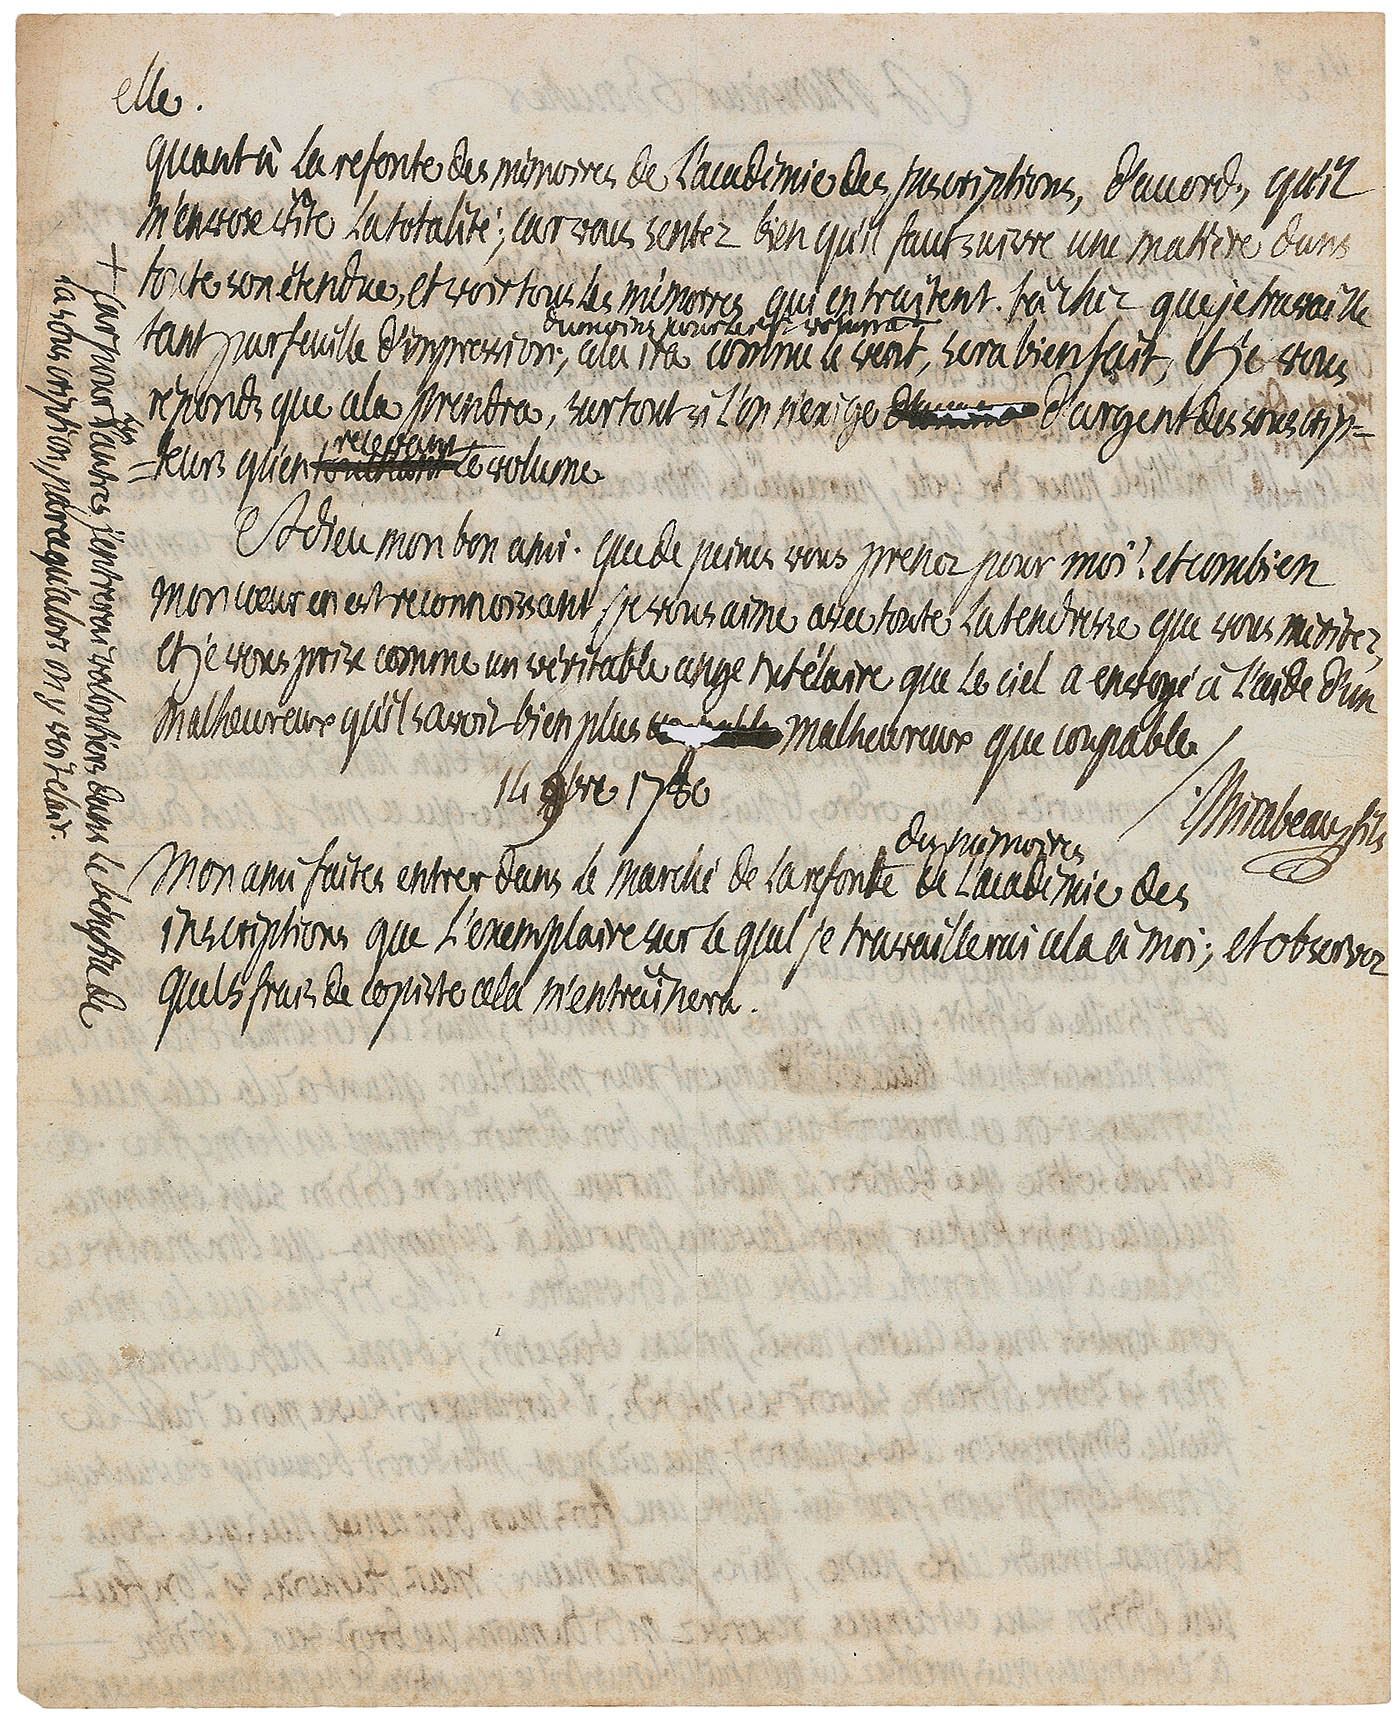 elle.
quant à la refonte des mémoires de l'académie des inscriptions, d'accord, qu'il
m'envoie vite la totalité; car vous sentez bien qu'il faut suivre une matière dans
toute son étendue, et voir tous les mémoires qui en traitent. tâchez que je travaille
du moins pour le 1er volume +
tant par feuille d'impression; cela ira comme le vent, sera bien fait, et je vous
réponds que cela prendra, surtout si l'on n'exige d'argent des souscrip=
recevant
=teurs qu'en le volume
Adieu mon bon ami. que de peines vous prenez pour moi! et combien
mon cœur en est reconnoissant! je vous aime avec toute la tendresse que vous méritez,
et je vous prise comme un véritable ange tutélaire que le ciel a envoyé à l'aide d'un
malheureux qu'il savoit bien plus malheureux que coupable
14 9bre 1780
Mirabeau fils
des mémoires
Mon ami faites entrer dans le marché de la refonte de l'académie des
inscriptions que l'exemplaire sur lequel je travaillerai sera à moi; et observez
quels frais de copiste cela m'entraînera.
+ car pour les autres j'entrerai volontiers dans le bénéfice de
la souscription, parce qu'alors on y voit clair.